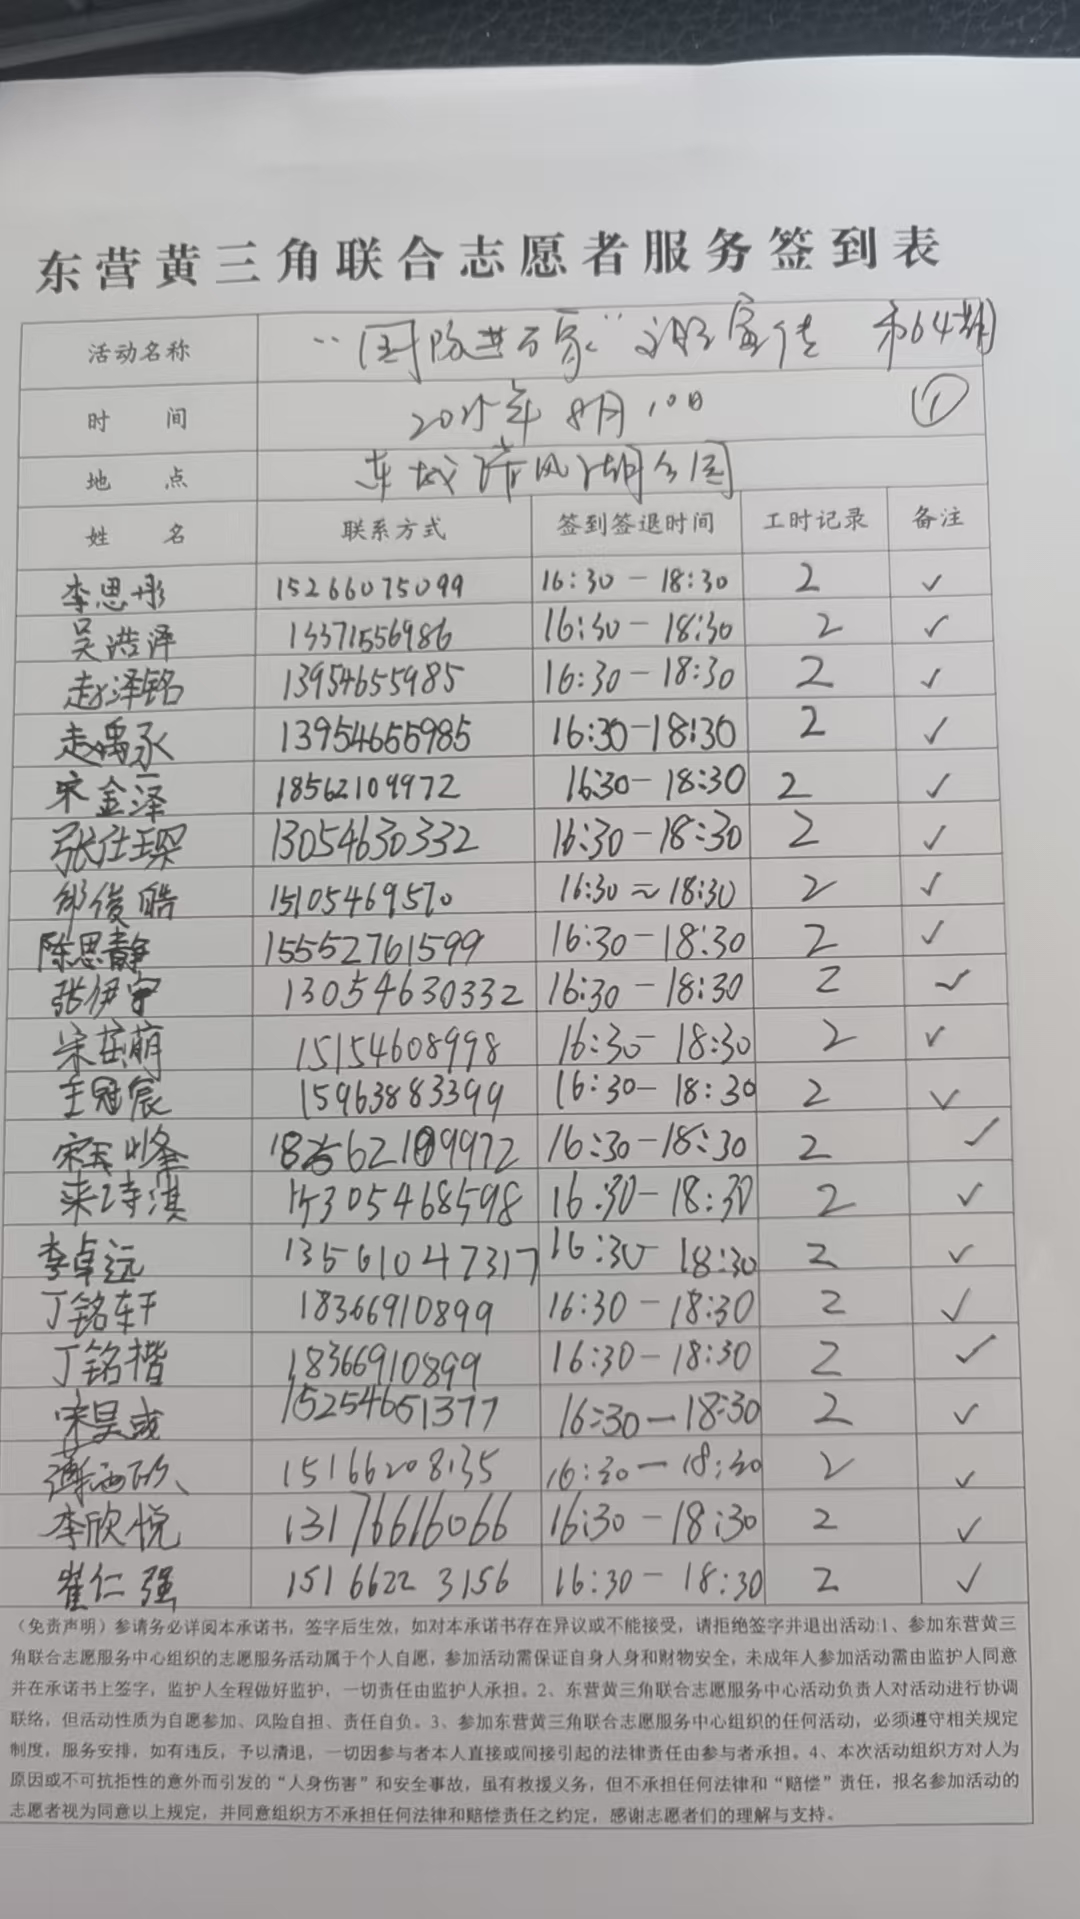 东营黄三角联合志愿者服务签到表
活动名称 “国防进百家” 宣传 第64期
时 间 2025年8月10日 ①
地 点 东城清风湖公园
姓 名 联系方式 签到签退时间 工时记录 备注
李思彤 15266075099 16:30-18:30 2 ✓
吴浩泽 13371556986 16:30-18:30 2 ✓
赵泽铭 13954655985 16:30-18:30 2 ✓
赵禹承 13954655985 16:30-18:30 2 ✓
宋金泽 18562109972 16:30-18:30 2 ✓
张仕琛 13054630332 16:30-18:30 2 ✓
邹俊皓 15105469570 16:30~18:30 2 ✓
陈思静 15552761599 16:30-18:30 2 ✓
张伊宁 13054630332 16:30-18:30 2 ✓
宋萌 15154608998 16:30-18:30 2 ✓
王冠宸 15963883399 16:30-18:30 2 ✓
宋 峰 18562109972 16:30-18:30 2 ✓
来诗淇 15305468598 16:30-18:30 2 ✓
李卓远 13561047317 16:30-18:30 2 ✓
丁铭轩 18366910899 16:30-18:30 2 ✓
丁铭楷 18366910899 16:30-18:30 2 ✓
宋昊彧 15254651377 16:30-18:30 2 ✓
15166208135 16:30-18:30 2 ✓
李欣悦 13176616066 16:30-18:30 2 ✓
崔仁强 15166223156 16:30-18:30 2 ✓
（免责声明）参请务必详阅本承诺书，签字后生效，如对本承诺书存在异议或不能接受，请拒绝签字并退出活动:1、参加东营黄三
角联合志愿服务中心组织的志愿服务活动属于个人自愿，参加活动需保证自身人身和财物安全，未成年人参加活动需由监护人同意
并在承诺书上签字，监护人全程做好监护，一切责任由监护人承担。2、东营黄三角联合志愿服务中心活动负责人对活动进行协调
联络，但活动性质为自愿参加、风险自担、责任自负。3、参加东营黄三角联合志愿服务中心组织的任何活动，必须遵守相关规定
制度，服务安排，如有违反，予以清退，一切因参与者本人直接或间接引起的法律责任由参与者承担。4、本次活动组织方对人为
原因或不可抗拒性的意外而引发的“人身伤害”和安全事故，虽有救援义务，但不承担任何法律和“赔偿”责任，报名参加活动的
志愿者视为同意以上规定，并同意组织方不承担任何法律和赔偿责任之约定，感谢志愿者们的理解与支持。